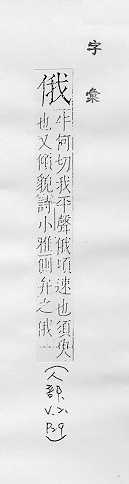 字彙
俄
牛何切我平聲俄頃速也須臾
也又傾貌詩小雅側弁之俄
(人部.
V.2.
P.9)